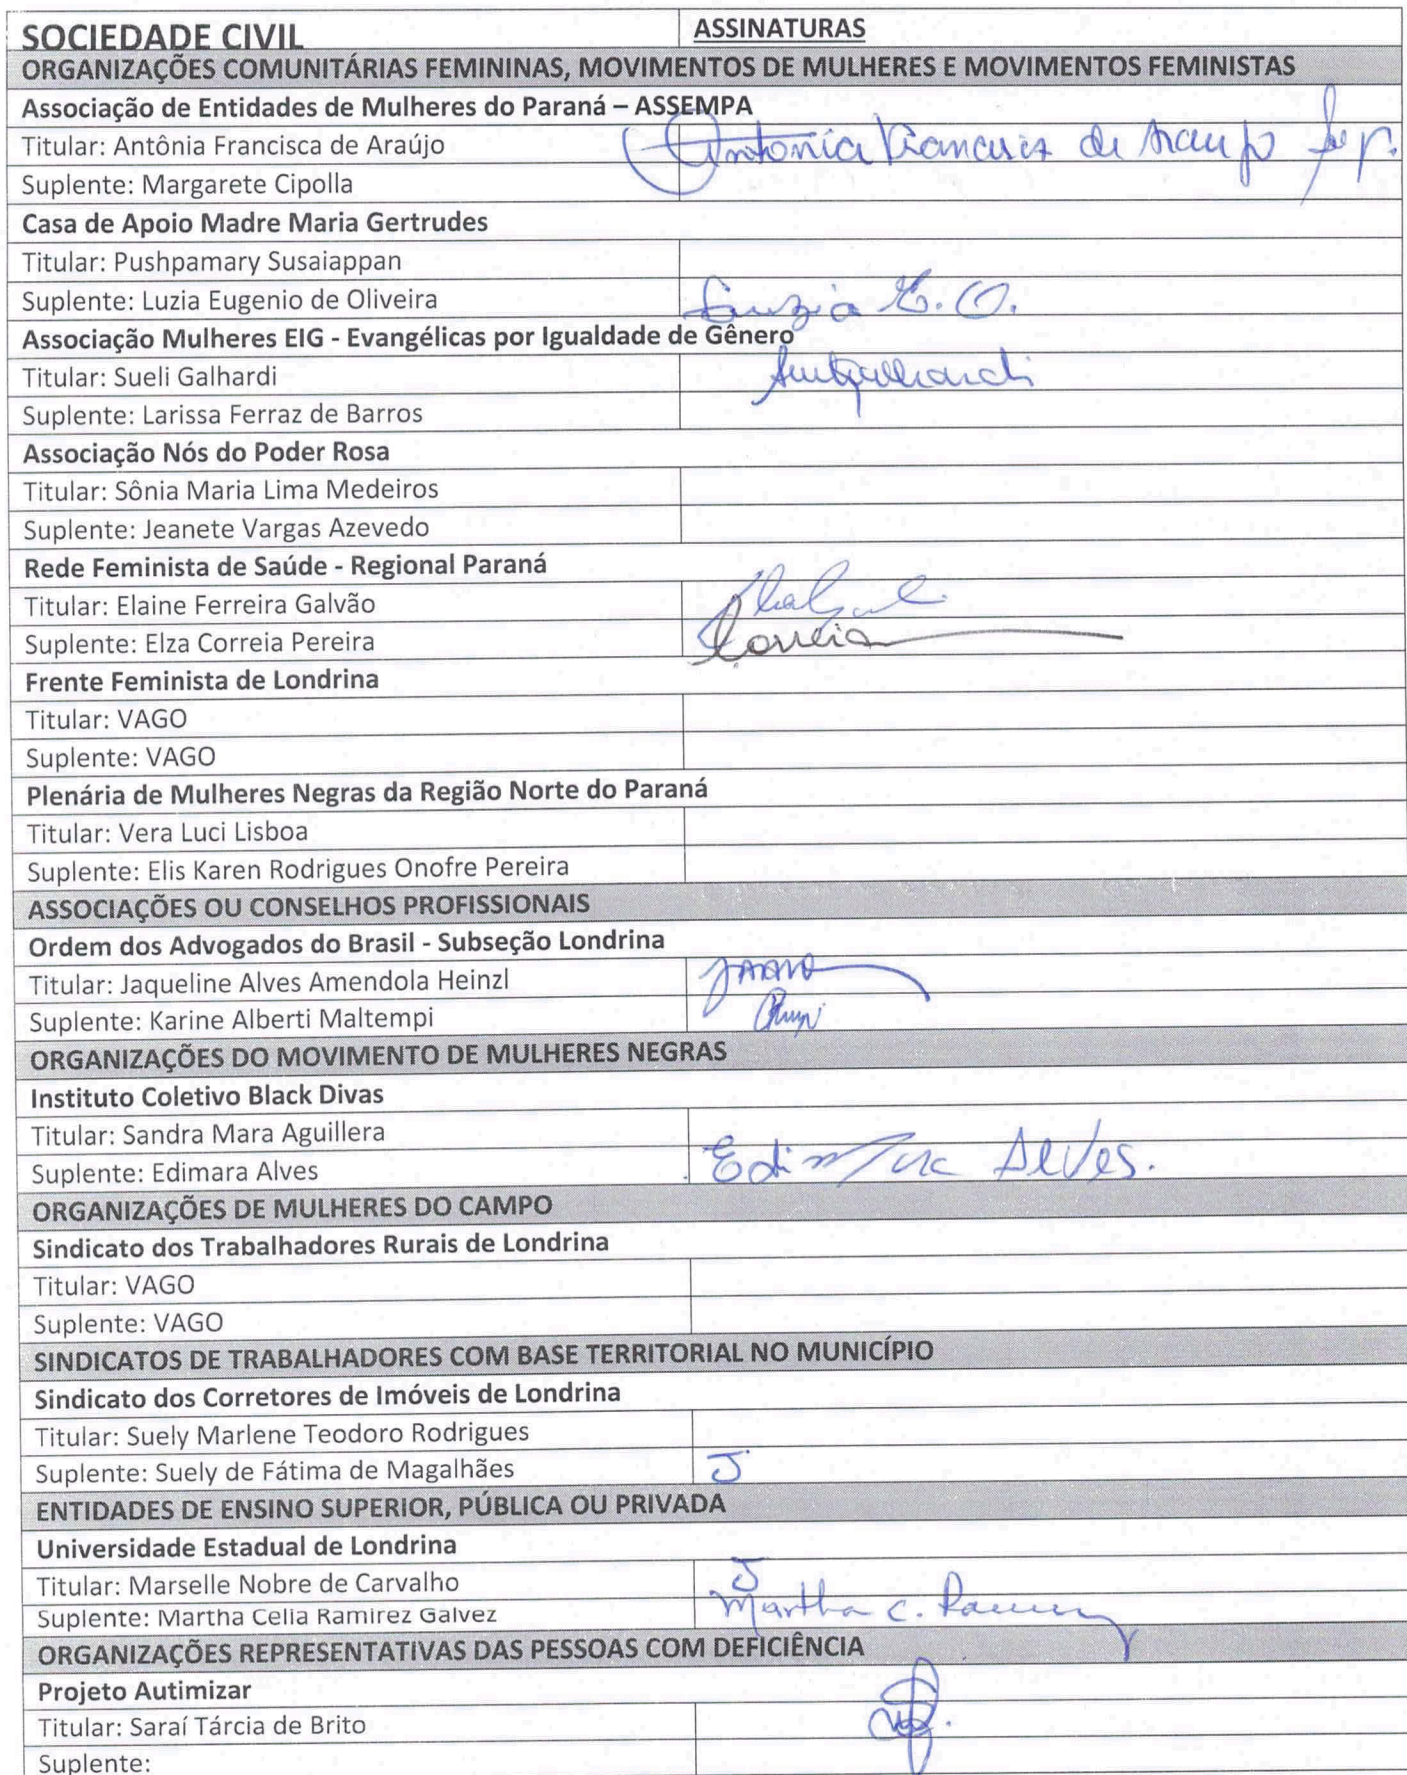 SOCIEDADE CIVIL ASSINATURAS
ORGANIZAÇÕES COMUNITÁRIAS FEMININAS, MOVIMENTOS DE MULHERES E MOVIMENTOS FEMINISTAS
Associação de Entidades de Mulheres do Paraná – ASSEMPA
Titular: Antônia Francisca de Araújo Antonia Francisca de Araujo
Suplente: Margarete Cipolla
Casa de Apoio Madre Maria Gertrudes
Titular: Pushpamary Susaiappan
Suplente: Luzia Eugenio de Oliveira Luzia E. O.
Associação Mulheres EIG - Evangélicas por Igualdade de Gênero
Titular: Sueli Galhardi
Suplente: Larissa Ferraz de Barros
Associação Nós do Poder Rosa
Titular: Sônia Maria Lima Medeiros
Suplente: Jeanete Vargas Azevedo
Rede Feminista de Saúde - Regional Paraná
Titular: Elaine Ferreira Galvão
Suplente: Elza Correia Pereira Correia
Frente Feminista de Londrina
Titular: VAGO
Suplente: VAGO
Plenária de Mulheres Negras da Região Norte do Paraná
Titular: Vera Luci Lisboa
Suplente: Elis Karen Rodrigues Onofre Pereira
ASSOCIAÇÕES OU CONSELHOS PROFISSIONAIS
Ordem dos Advogados do Brasil - Subseção Londrina
Titular: Jaqueline Alves Amendola Heinzl
Suplente: Karine Alberti Maltempi
ORGANIZAÇÕES DO MOVIMENTO DE MULHERES NEGRAS
Instituto Coletivo Black Divas
Titular: Sandra Mara Aguillera
Suplente: Edimara Alves Edimara Alves.
ORGANIZAÇÕES DE MULHERES DO CAMPO
Sindicato dos Trabalhadores Rurais de Londrina
Titular: VAGO
Suplente: VAGO
SINDICATOS DE TRABALHADORES COM BASE TERRITORIAL NO MUNICÍPIO
Sindicato dos Corretores de Imóveis de Londrina
Titular: Suely Marlene Teodoro Rodrigues
Suplente: Suely de Fátima de Magalhães J
ENTIDADES DE ENSINO SUPERIOR, PÚBLICA OU PRIVADA
Universidade Estadual de Londrina
Titular: Marselle Nobre de Carvalho J
Suplente: Martha Celia Ramirez Galvez Martha C.
ORGANIZAÇÕES REPRESENTATIVAS DAS PESSOAS COM DEFICIÊNCIA
Projeto Autimizar
Titular: Saraí Tárcia de Brito
Suplente: